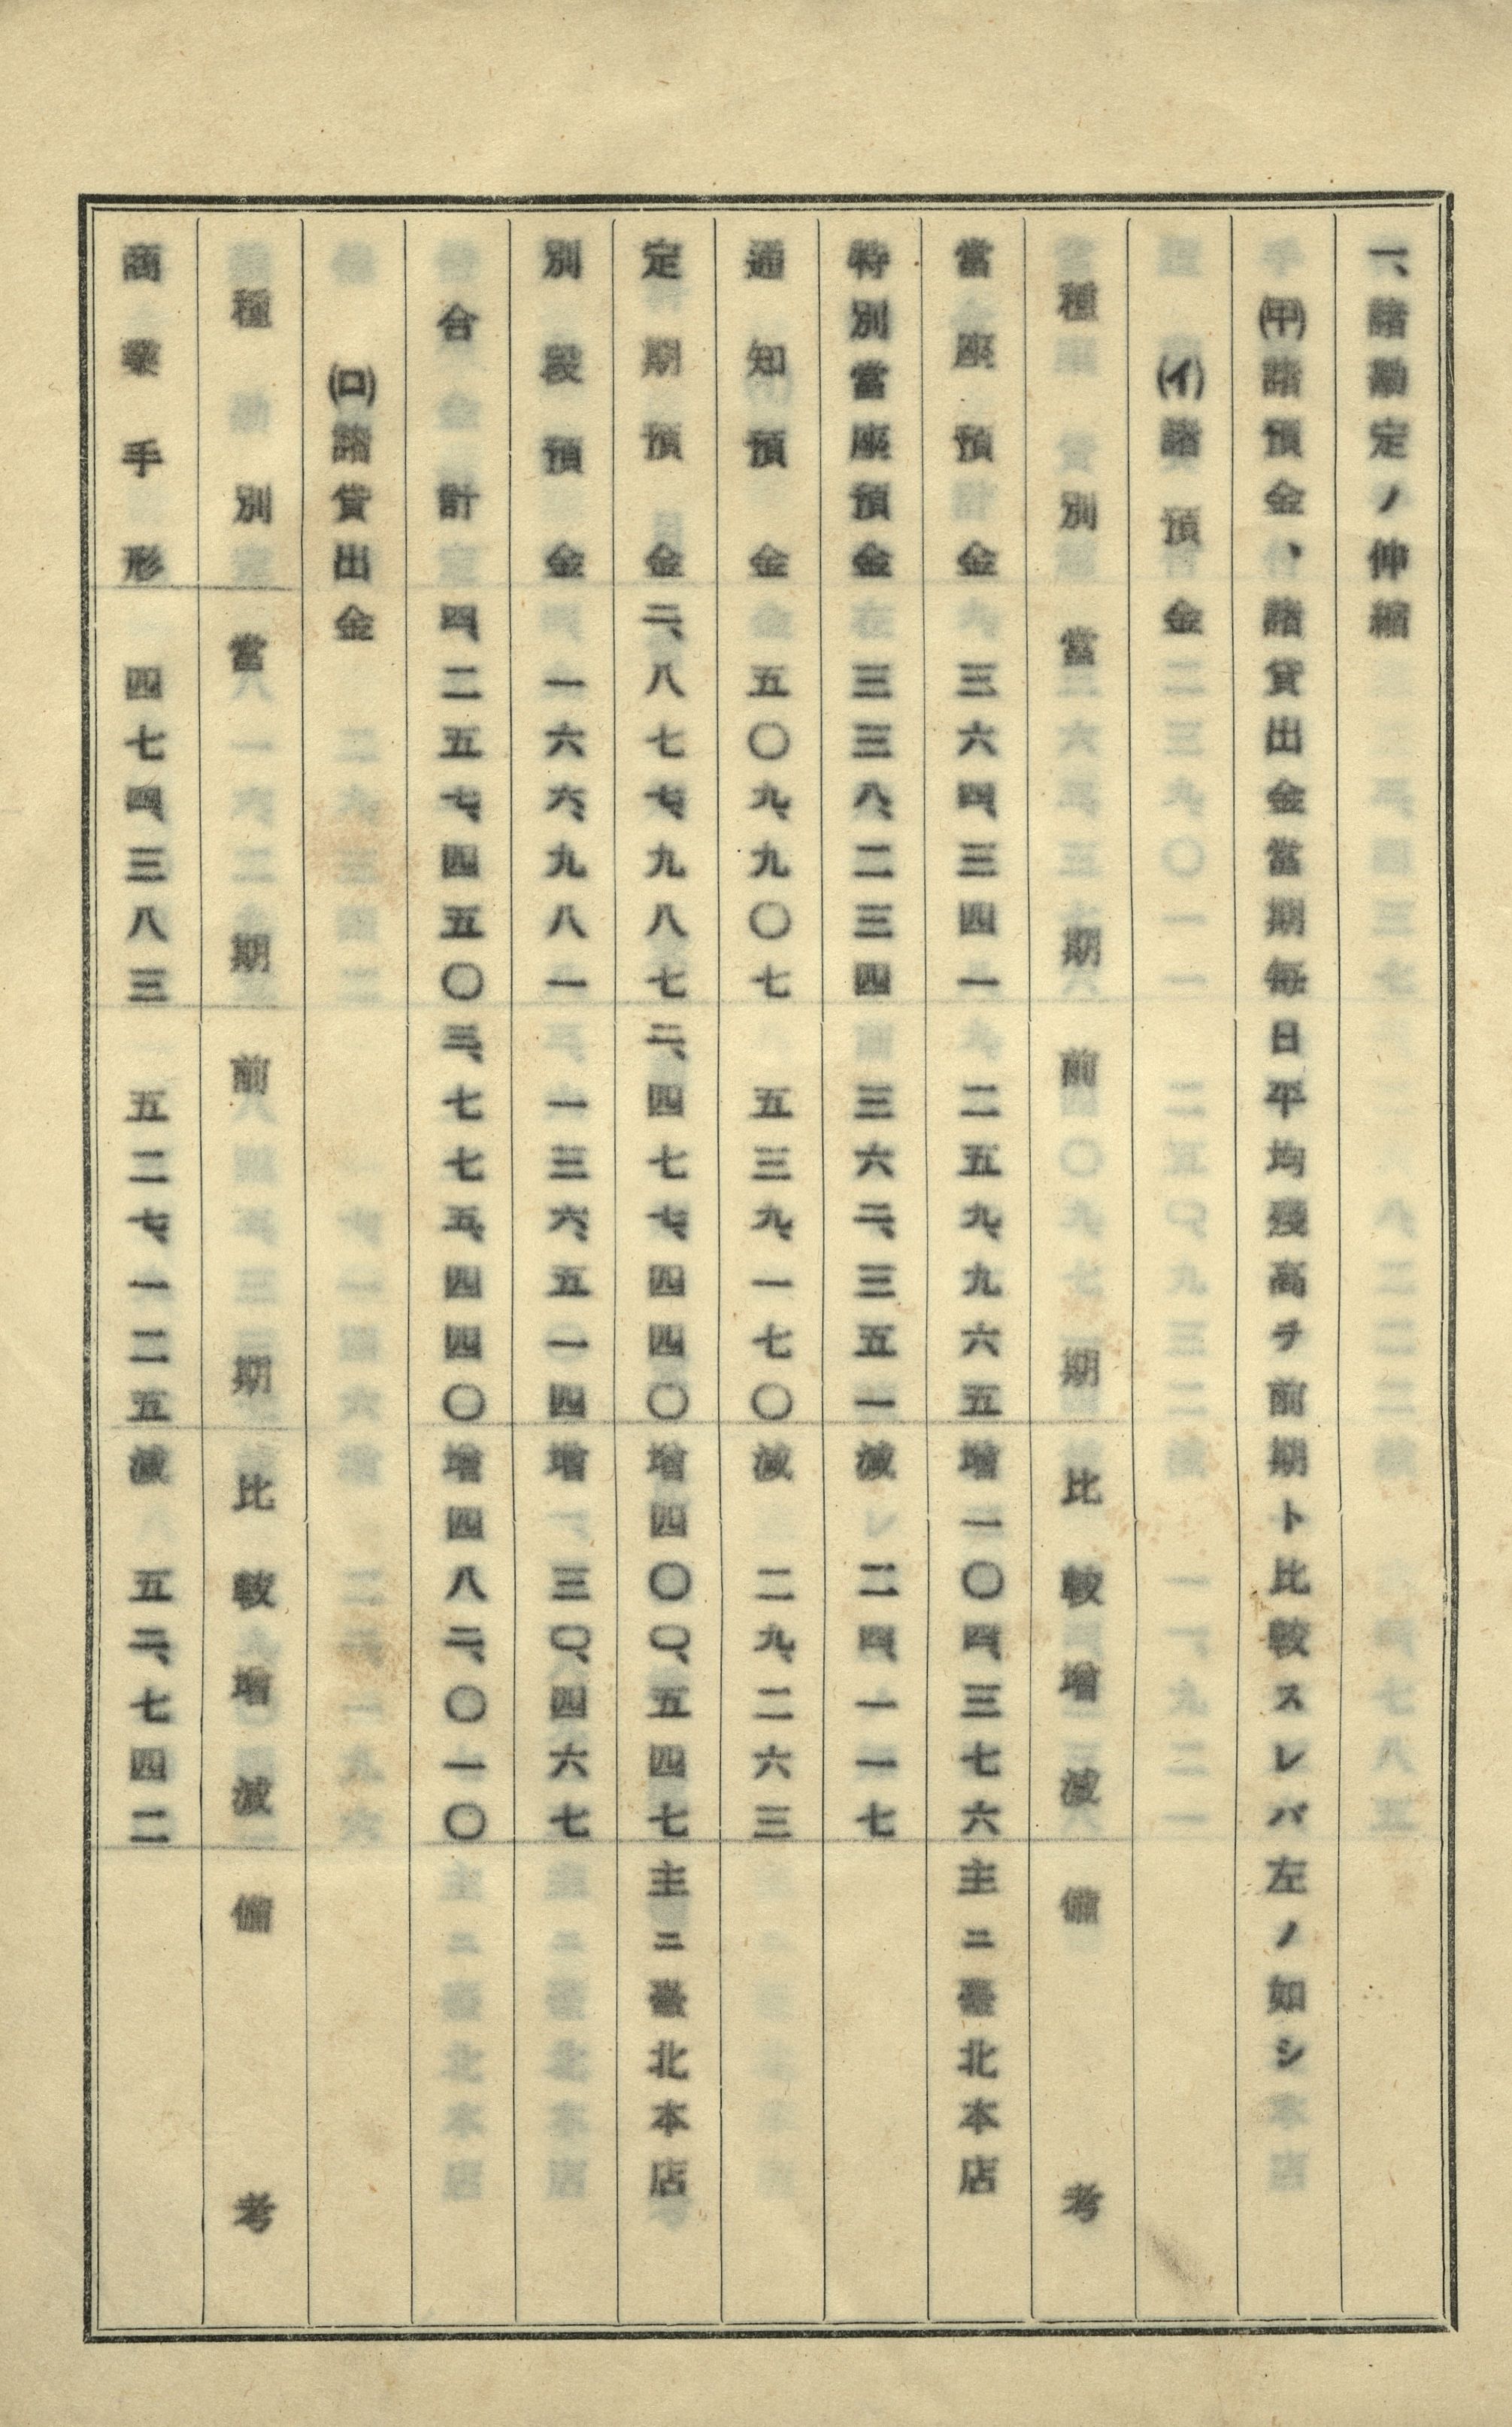 一、諸勘定ノ伸縮
(甲)諸預金、諸貸出金當期毎日平均殘高ヲ前期ト比較スレバ左ノ如シ
(イ)諸預金
種別 當期 前期 比較增減 備考
當座預金 三六四、三四一 二五九、九六五 增一〇四、三七六 主ニ臺北本店
特別當座預金 三三八、二三四 三六二、三五一 減二四、一一七
通知預金 五〇九、九〇七 五三九、一七〇 減二九、二六三
定期預金 二、八七七、九八七 二、四七七、四四〇 增四〇〇、五四七 主ニ臺北本店
別段預金 一六六、九八一 一三六、五一四 增三〇、四六七
合計 四、二五七、四五〇 三、七七五、四四〇 增四八二、〇一〇
(ロ)諸貸出金
種別 當期 前期 比較增減 備考
商業手形 四七四、三八三 五二七、一二五 減五二、七四二